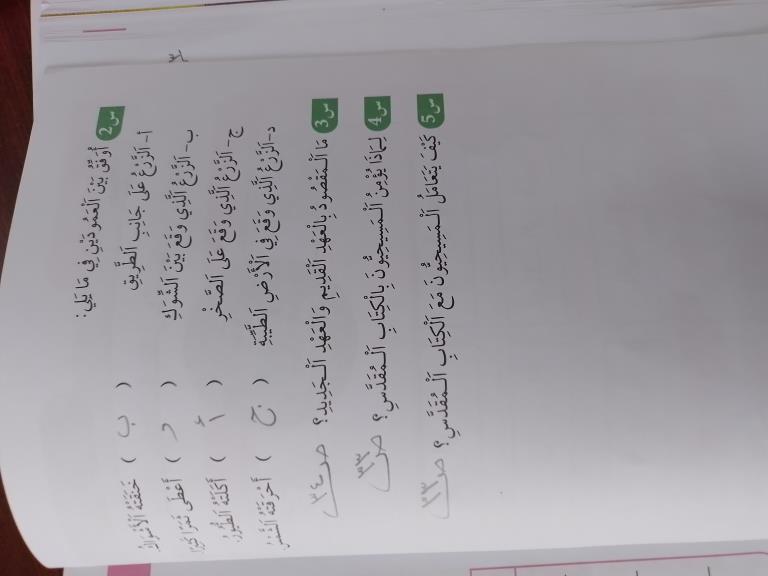 ٣
س2 أُوَفِّقُ بَيْنَ الْعَمُودَيْنِ فِي مَا يَلِي:
أ- الزَّرْعُ عَلَى جَانِبِ الطَّرِيقِ ( ب ) خَنَقَتْهُ الْأَشْوَاكُ
ب- الزَّرْعُ الَّذِي وَقَعَ بَيْنَ الشَّوْكِ ( د ) أَعْطَى ثَمَرًا كَثِيرًا
ج- الزَّرْعُ الَّذِي وَقَعَ عَلَى الصَّخْرِ ( أ ) أَكَلَتْهُ الطُّيُورُ
د- الزَّرْعُ الَّذِي وَقَعَ فِي الْأَرْضِ الطَّيِّبَةِ ( ج ) أَحْرَقَتْهُ الشَّمْسُ
س3 مَا الْمَقْصُودُ بِالْعَهْدِ الْقَدِيمِ وَالْعَهْدِ الْجَدِيدِ؟ ص ٣٤
س4 لِمَاذَا يُؤْمِنُ الْمَسِيحِيُّونَ بِالْكِتَابِ الْمُقَدَّسِ؟ ص ٣٣
س5 كَيْفَ يَتَعَامَلُ الْمَسِيحِيُّونَ مَعَ الْكِتَابِ الْمُقَدَّسِ؟ ص ٣٣